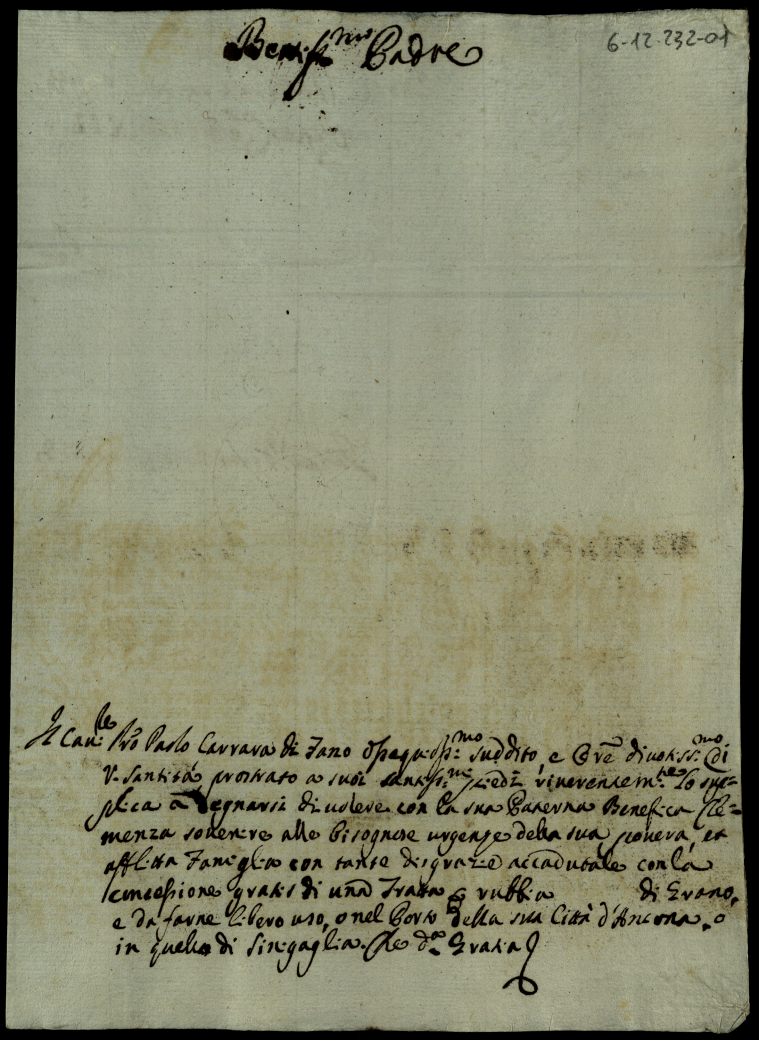 6-12-232-01
Beatiss.mo Padre
Il Cau.re Pro Paolo Carrara di Fano ossequiosiss.mo suddito, e Ore diuotiss.mo di
V. Santità prostrato a suoi santiss.mi piedi riuerentem.te lo sup=
plica à degnarsi di uolere con la sua Paterna Benefica Cle=
menza souenire alle bisognose urgenze della sua pouera, et
afflitta Famiglia con tante disgrazie accadutale con la
concessione gratis di una Tratta rubbia di Grano,
e da farne libero uso, o nel Porto della sua Città d'Ancona, o
in quello di Sinigaglia. Che Grazia